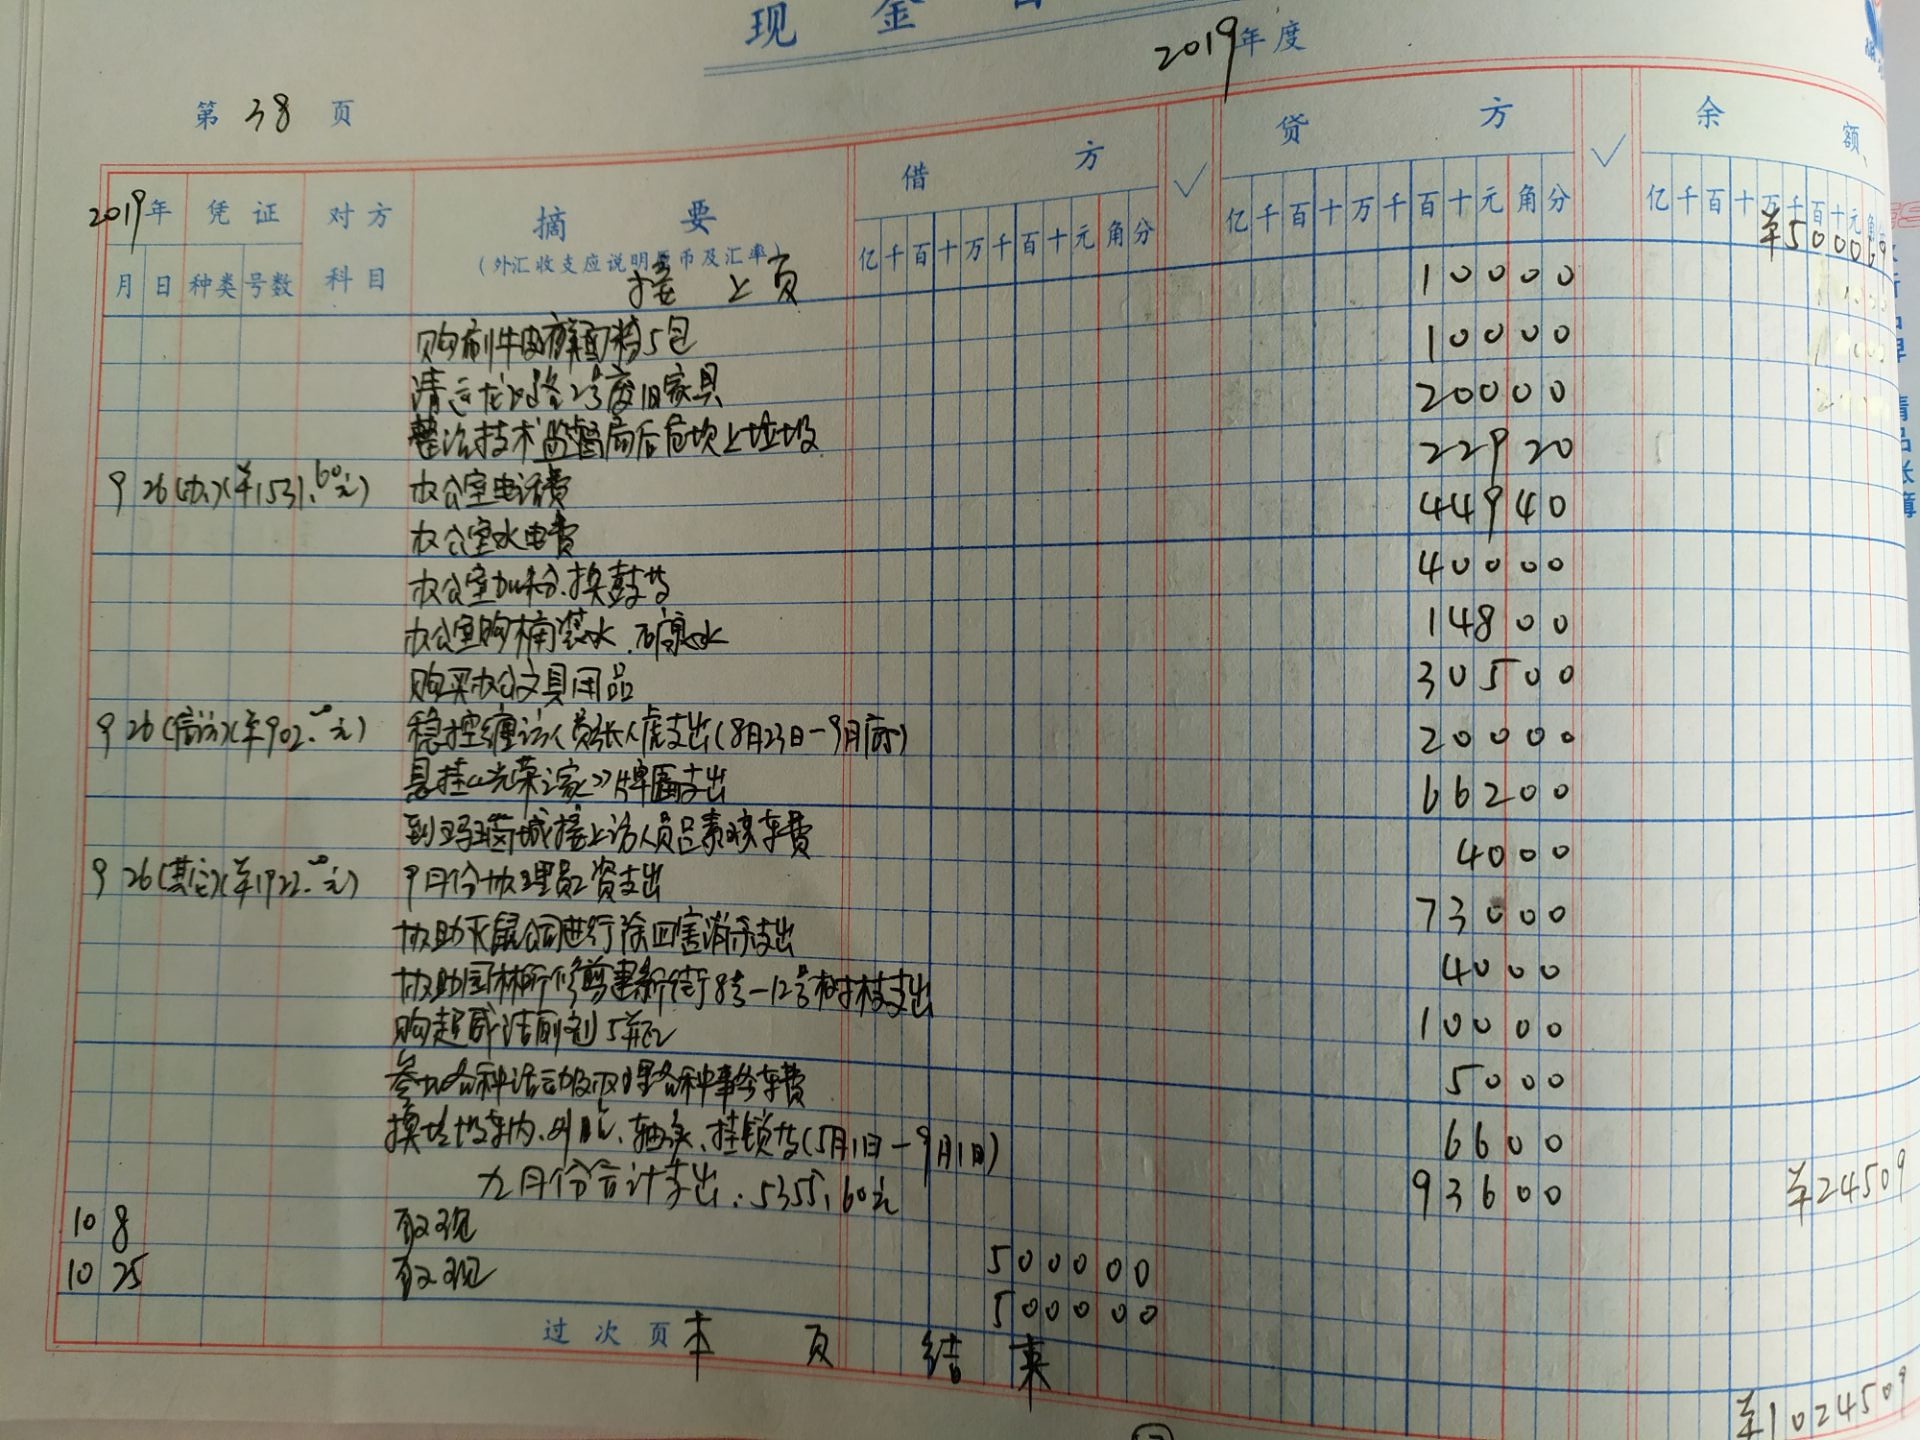 现 金
2019年度
第 38 页
2019年 凭证 对方 摘 要 借 方 ✓ 贷 方 ✓ 余 额
月 日 种类 号数 科目 (外汇收支应说明原币及汇率) 亿千百十万千百十元角分 亿千百十万千百十元角分 亿千百十万千百十元角
接 上 页 10000
购刷牛皮癣面粉5包 10000
清运龙 路2号废旧家具 20000
整治技术监督局后危坎上垃圾 22920
9 26(办)(¥1531.60元) 办公室电话费 44940
办公室水电费 40000
办公室加粉.换鼓等 14800
办公室购桶装水.矿泉水 30500
购买办公文具用品 20000
9 26(信访)(¥902.00元) 稳控缠访人员张人虎支出(8月23日—9月前) 66200
悬挂“光荣之家”牌匾支出 4000
到 城接上访人员吕素 车费 73000
9 26(其它)(¥1922.00元) 9月份协理员工资支出 4000
协助灭鼠公司进行除四害消杀支出 10000
协助园林所修剪建新街8号—12号树枝支出 5000
购超威洁厕剂5瓶 6600
参加各种活动及办理各种事务车费 93600
换垃圾车内、外胎、轴承、挂锁等(5月1日—9月1日)
九月份合计支出:5355.60元 ¥24509
10 8 取现 500000
10 25 取现 500000
过次页 本 页 结 束 ¥1024509